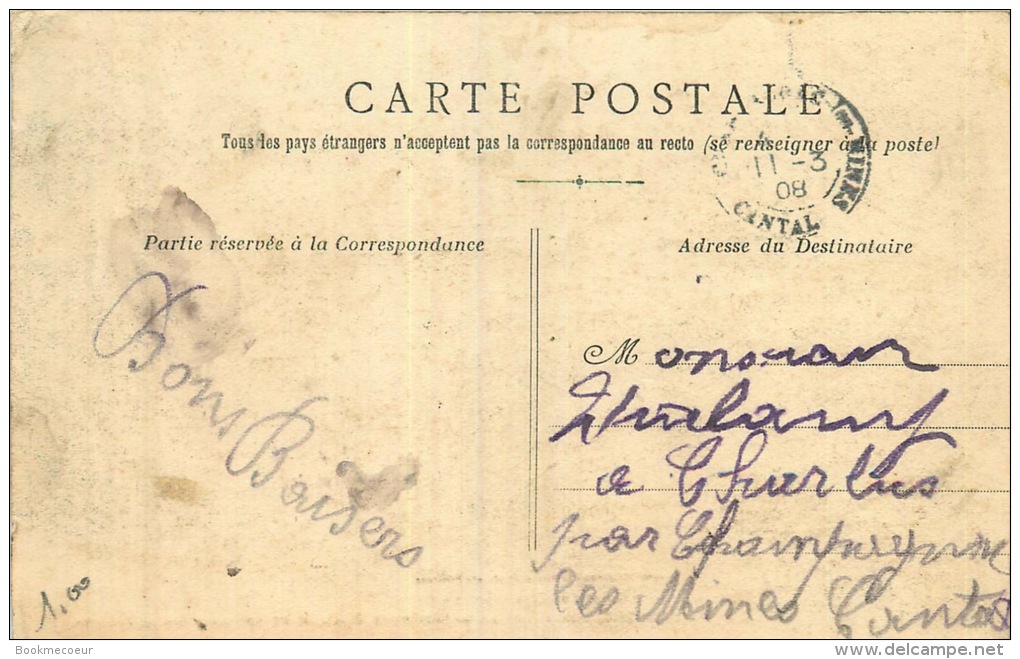 CARTE POSTALE
Tous les pays étrangers n'acceptent pas la correspondance au recto (se renseigner à la poste)
11 -3
08
CANTAL
MINES
Partie réservée à la Correspondance
Adresse du Destinataire
Bons Baisers
Monsieur
a Charlus
par Champagnac
les Mines Cantal
1,00
Bookmecoeur